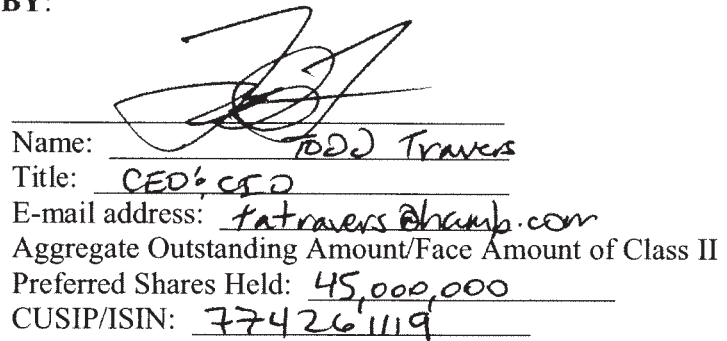 BY:
Name: TODD Travers
Title: CEO & CIO
E-mail address: tatravers@hcmlp.com
Aggregate Outstanding Amount/Face Amount of Class II
Preferred Shares Held: 45,000,000
CUSIP/ISIN: 774261119